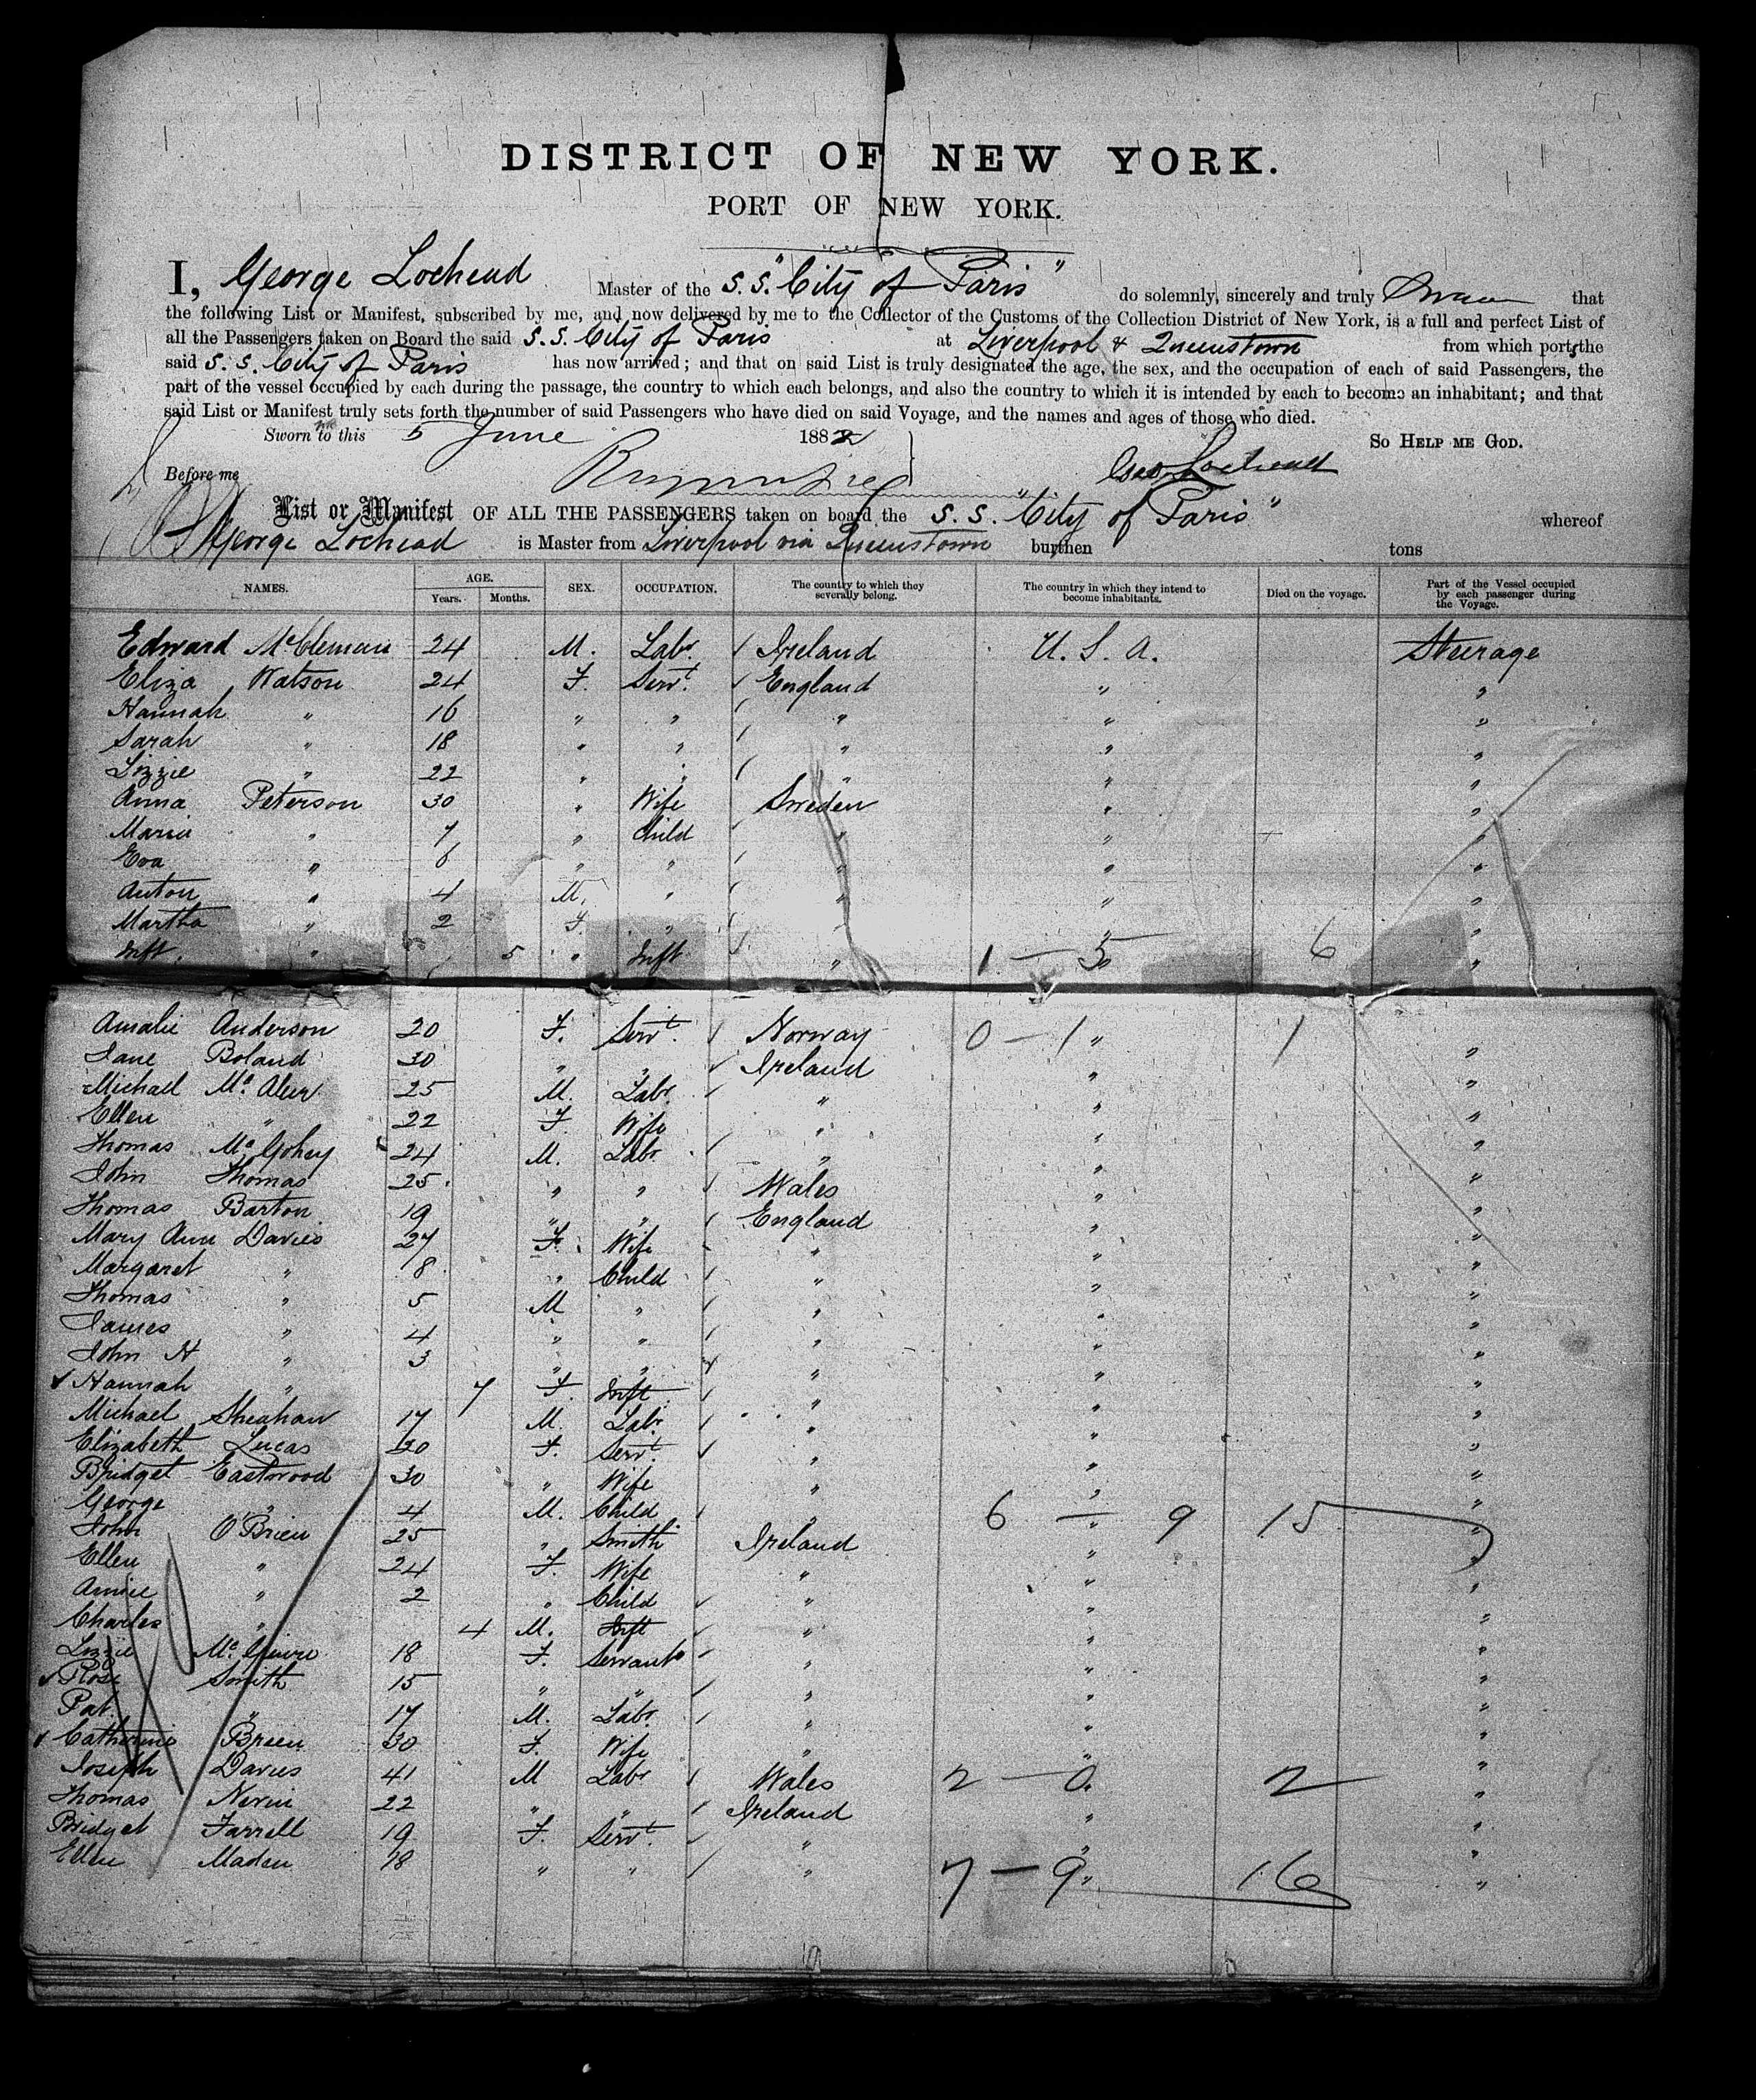 DISTRICT OF NEW YORK.
PORT OF NEW YORK.
I, George Lochead Master of the S.S. "City of Paris" do solemnly, sincerely and truly Swear that
the following List or Manifest, subscribed by me, and now delivered by me to the Collector of the Customs of the Collection District of New York, is a full and perfect List of
all the Passengers taken on Board the said S.S. City of Paris at Liverpool & Queenstown from which ports the
said S.S. City of Paris has now arrived; and that on said List is truly designated the age, the sex, and the occupation of each of said Passengers, the
part of the vessel occupied by each during the passage, the country to which each belongs, and also the country to which it is intended by each to become an inhabitant; and that
said List or Manifest truly sets forth the number of said Passengers who have died on said Voyage, and the names and ages of those who died.
Sworn to this 5 June 1882 SO HELP ME GOD.
Before me Geo Lochead
List or Manifest OF ALL THE PASSENGERS taken on board the S.S. "City of Paris" whereof
George Lochead is Master from Liverpool via Queenstown burthen tons
NAMES. AGE. Years. Months. SEX. OCCUPATION. The country to which they severally belong. The country in which they intend to become inhabitants. Died on the voyage. Part of the Vessel occupied by each passenger during the Voyage.
Edward 24 M. Labr. Ireland U.S.A. Steerage
Eliza Watson 24 F. Servt. England " "
Hannah " 16 " " " " "
Sarah " 18 " " " " "
Lizzie " 22 " " " " "
Anna Peterson 30 " Wife Sweden " "
Maria " 7 " Child " " "
Eva " 6 " " " " "
Anton " 4 M. " " " "
Martha " 2 F " " " "
Inft. " 5 " Inft " 1 — 5 " 6 "
Amalie Anderson 20 F. Servt. Norway 0 — 1 " 1 "
Jane Boland 30 " " Ireland " "
Michael 25 M. Labr. " " "
Ellen " 22 F. Wife " " "
Thomas McGohey 24 M. Labr. " " "
John Thomas 25 " " Wales " "
Thomas Barton 19 " " England " "
Mary Ann Davies 27 F. Wife " " "
Margaret " 8 " Child " " "
Thomas " 5 M " " " "
James " 4 " " " " "
John H " 3 " " " " "
Hannah " 7 F. Inft " " "
Michael Sheahan 17 M. Labr. " " "
Elizabeth Lucas 20 F. Servt. " " "
Bridget Eastwood 30 " Wife " " "
George " 4 M. Child " 6 — " 9 15 "
John O'Brien 25 " Smith Ireland " "
Ellen " 24 F. Wife " " "
Annie " 2 " Child " " "
Charles " 4 M. Inft " " "
Lizzie McGuire 18 F. Servant " " "
Rose Smith 15 " " " " "
Pat. " 17 M. Labr. " " "
Catherine Breen 30 F. Wife " " "
Joseph Davies 41 M Labr Wales 2 — 0 " 2 "
Thomas Nevin 22 " " Ireland " "
Bridget Farrell 19 F. Servt. " " "
Ellen Maden 18 " " " 7 — 9 " 16 "